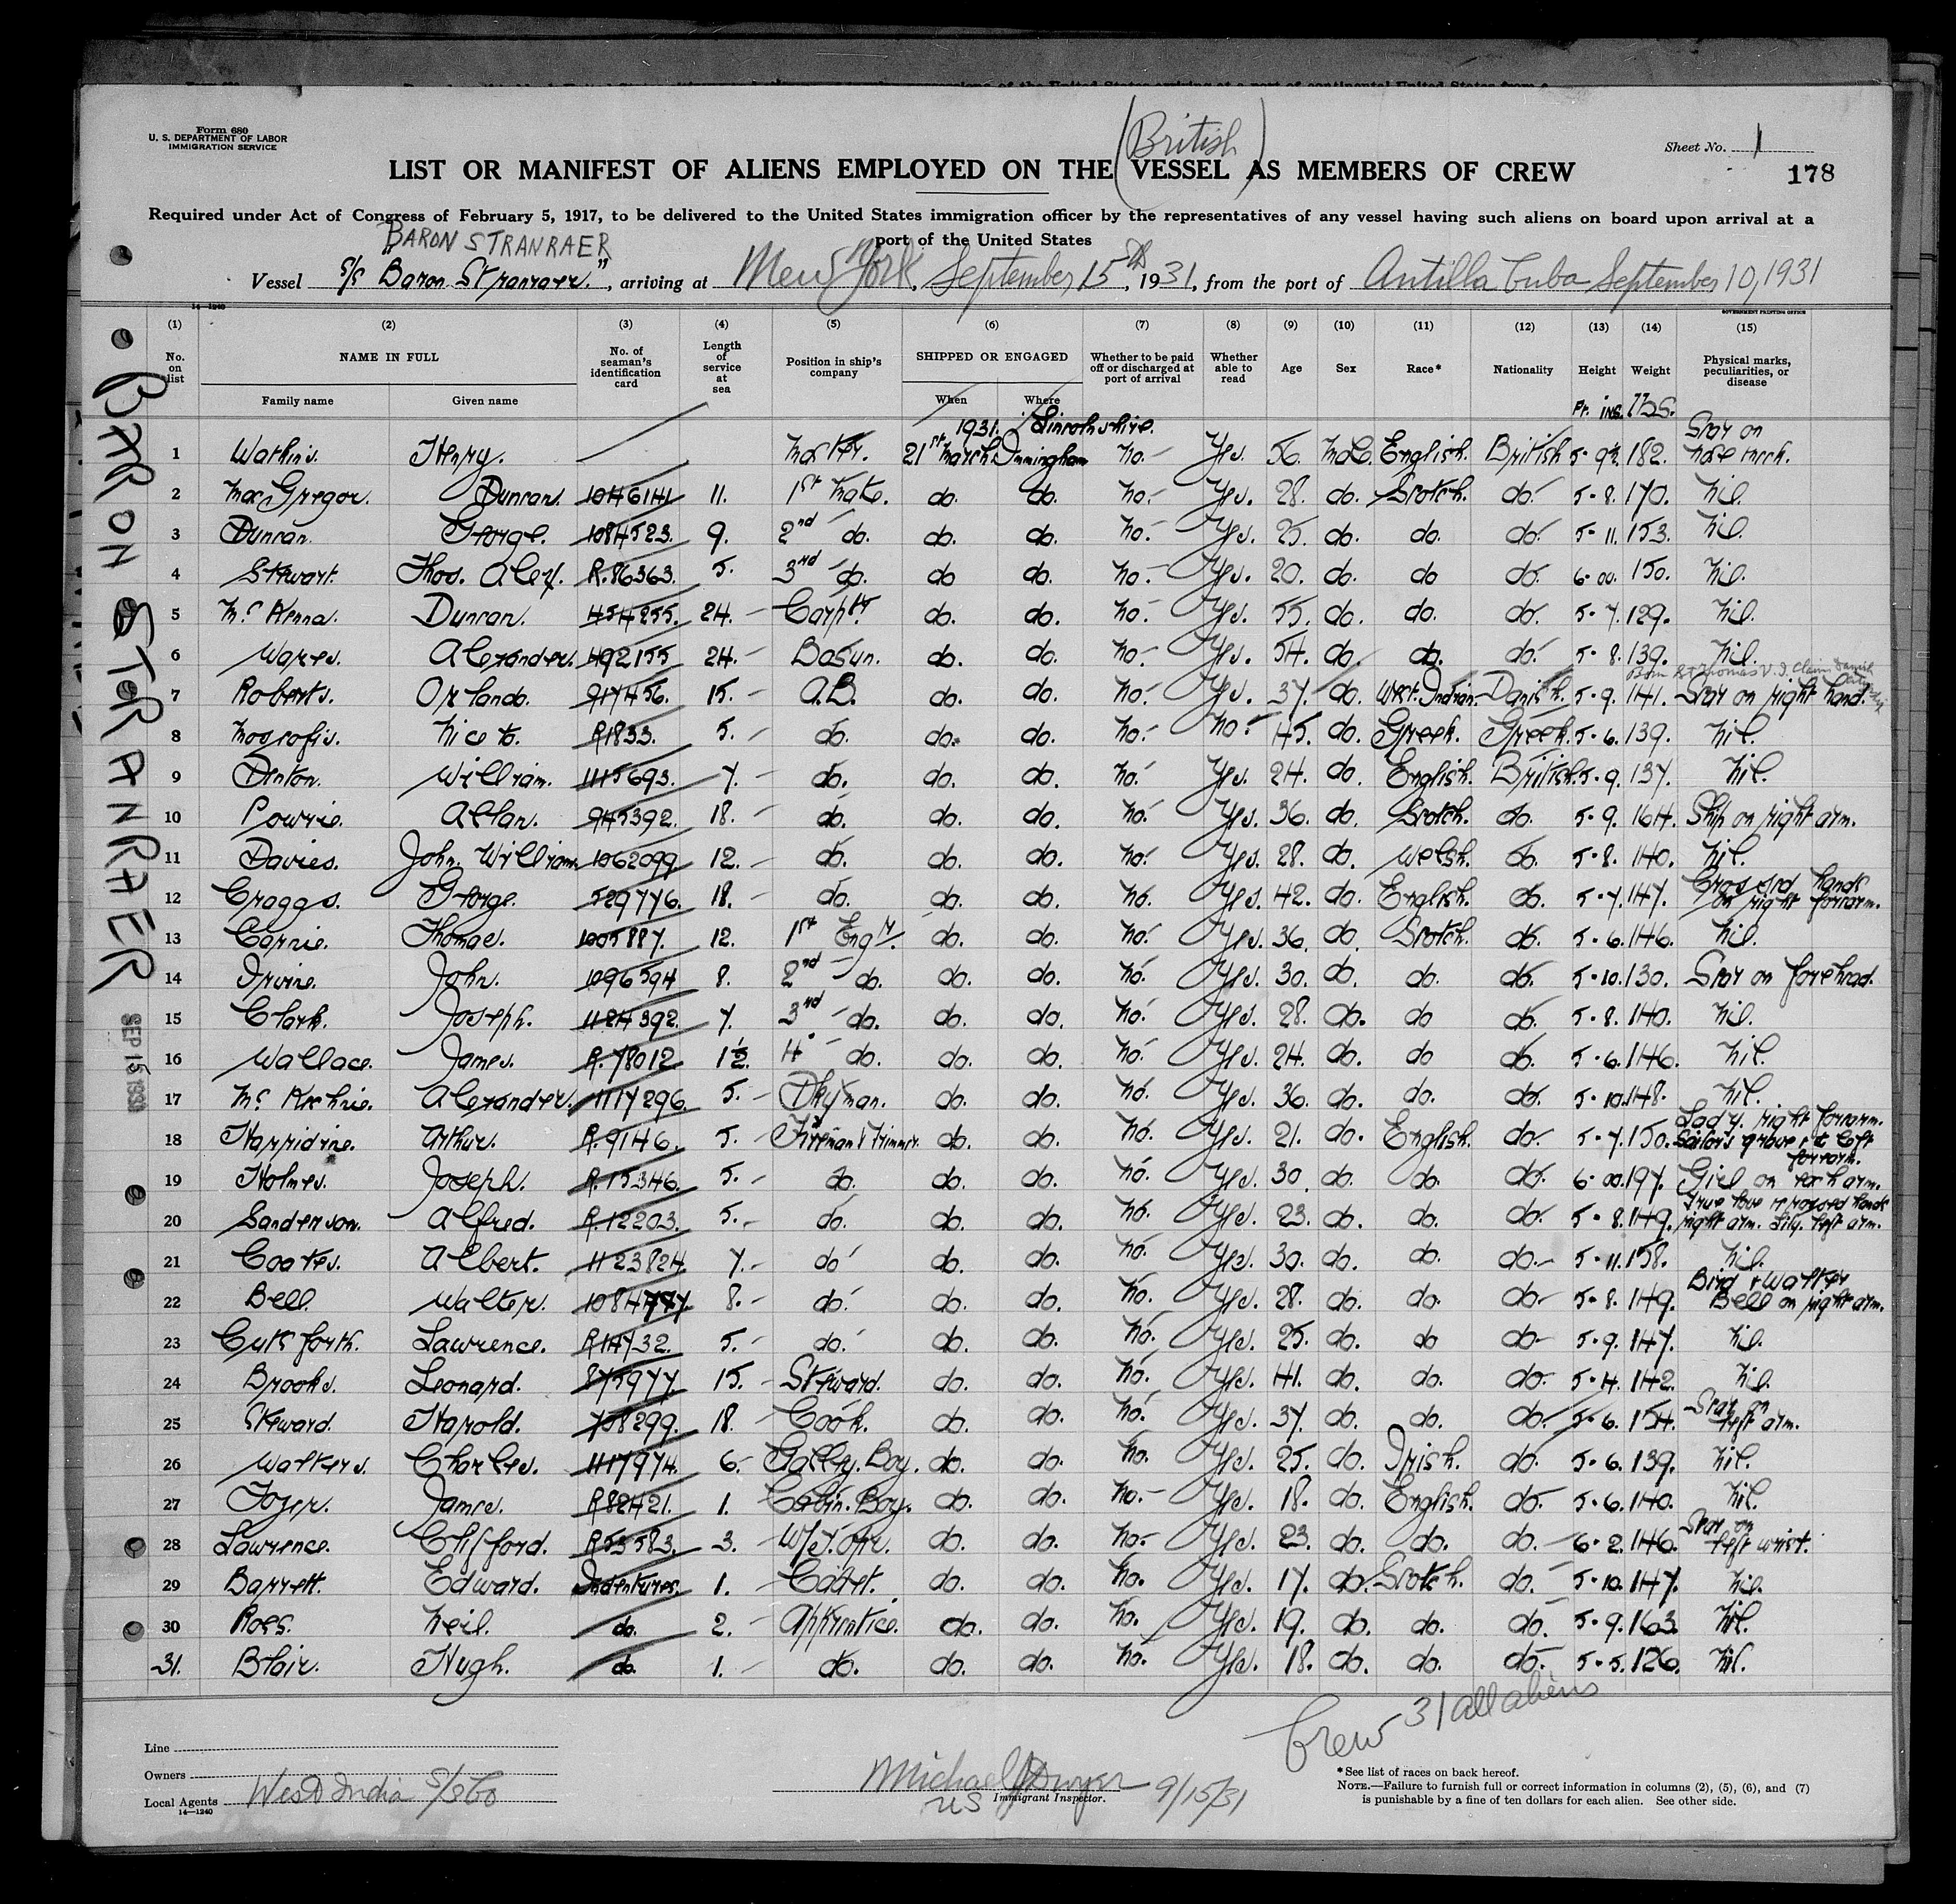 Form 680
U. S. DEPARTMENT OF LABOR
IMMIGRATION SERVICE
(British)
Sheet No. 1
LIST OR MANIFEST OF ALIENS EMPLOYED ON THE VESSEL AS MEMBERS OF CREW
178
Required under Act of Congress of February 5, 1917, to be delivered to the United States immigration officer by the representatives of any vessel having such aliens on board upon arrival at a
port of the United States
BARON STRANRAER
Vessel S/S "Baron Stranraer.", arriving at New York, September 15th, 1931, from the port of Antilla Cuba September 10, 1931
14-1240
GOVERNMENT PRINTING OFFICE
(1) (2) (3) (4) (5) (6) (7) (8) (9) (10) (11) (12) (13) (14) (15)
No. on list NAME IN FULL No. of seaman's identification card Length of service at sea Position in ship's company SHIPPED OR ENGAGED Whether to be paid off or discharged at port of arrival Whether able to read Age Sex Race* Nationality Height Weight Physical marks, peculiarities, or disease
Family name Given name When Where Ft. ins. lbs.
1931. Lincolnshire.
1 Watkins. Henry. Master. 21st March Immingham no. Yes. 56. Male. English. British 5-9½. 182. Scar on nose & neck.
2 MacGregor. Duncan. 1046141 11. 1st Mate. do. do. no. Yes. 28. do. Scotch. do. 5-8. 170. nil.
3 Duncan. George. 1084523. 9. 2nd do. do. do. no. Yes. 25. do. do. do. 5-11. 153. nil.
4 Stewart. Thos. Alex. R.86363. 5. 3rd do. do do. no. Yes. 20. do. do do. 6-00. 150. nil.
5 McKenna. Duncan. 454255. 24. Carptr do. do. no. Yes. 55. do. do. do. 5-7. 129. nil.
6 Wares. Alexander. 492155 24. Bosun. do. do. no. Yes. 54. do. do. do. 5-8. 139. nil.
Born St Thomas V.I. Claim Danish
7 Roberts. Orlando. 917456. 15. A.B. do. do. no. Yes. 37. do. West. Indian. Danish. 5-9. 141. Scar on right hand.
8 Niceto. R1833. 5. do. do. do. no. no. 45. do. Greek. Greek. 5-6. 139. nil.
9 Denton. William. 1115693. 7. do. do. do. no. Yes. 24. do. English. British. 5-9. 137. nil.
10 Powrie. Allan. 945392. 18. do. do. do. no. Yes. 36. do. Scotch. do. 5-9. 164. Ship on right arm.
11 Davies. John. William. 1062099 12. do. do. do. no. Yes. 28. do. Welsh. do. 5-8. 140. nil.
12 Craggs. George. 529776. 18. do. do. do. no. Yes. 42. do. English. do. 5-7. 147. Crossed hands on right forearm.
13 Carnie. Thomas. 1005887. 12. 1st Engr. do. do. no. Yes. 36. do. Scotch. do. 5-6. 146. nil.
14 Irvine. John. 1096594 8. 2nd do. do. do. no. Yes. 30. do. do. do. 5-10. 130. Scar on forehead.
15 Clark. Joseph. 1124392. 7. 3rd do. do. do. no. Yes. 28. do. do do. 5-8. 140. nil.
16 Wallace. James. R.78012 1½. 4" do. do. do. no. Yes. 24. do. do do. 5-6. 146. nil.
17 McKechnie. Alexander. 1117296. 5. Dkyman. do. do. no. Yes. 36. do. do. do. 5-10. 148. nil.
18 Harridine. Arthur. R.9146. 5. Fireman & Trimmer. do. do. no. Yes. 21. do. English. do. 5-7. 150. Lady. right forearm. Sailors grave etc left forearm.
19 Holmes. Joseph. R.15346. 5. do. do. do. no. Yes. 30. do. do. do. 6-00. 197. Girl on each arm.
20 Sanderson. Alfred. R.12203. 5. do. do. do. no. Yes. 23. do. do. do. 5-8. 149. True love & crossed hands right arm. Lily. left arm.
21 Coates. Albert. 1123824. 7. do do. do. no. Yes. 30. do. do. do. 5-11. 158. nil.
22 Bell. Walter. 8. do. do. do. no. Yes. 28. do. do. do 5-8. 149. Bird & Walter Bell on right arm.
23 Cutforth. Lawrence. R14732. 5. do. do. do. no. Yes. 25. do. do do 5-9. 147. nil.
24 Brooks. Leonard. 875977. 15. Steward. do. do. no. Yes. 41. do. do. do. 5-4. 142. nil.
25 Steward. Harold. 708299. 18. Cook. do. do. no. Yes. 37. do. do. do. 5-6. 154. Scar on left arm.
26 Walters. Charles. 1117974. 6. Galley. Boy. do. do. no. Yes. 25. do. Irish. do. 5-6. 139. nil.
27 Tozer. James. R82421. 1. Cabin. Boy. do. do. no. Yes. 18. do. English. do. 5-6. 140. nil.
28 Lawrence. Clifford. R53583. 3. W/T. Opr. do. do. no. Yes. 23. do. do. do. 6-2. 146. Scar on left wrist.
29 Barrett. Edward. Indentures. 1. Cadet. do. do. no. Yes. 17. do. Scotch. do. 5-10. 147. nil.
30 Ross. Neil. do. 2. Apprentice. do. do. no. Yes. 19. do. do. do. 5-9. 163. nil.
31. Blair. Hugh. do. 1. do. do. do. no. Yes. 18. do. do. do. 5-5. 126. nil.
BARON STRANRAER
SEP 15 1931
Crew 31 all aliens
Line
Owners
Local Agents West India S/S Co
14-1240
Michael J Dwyer 9/15/31
US Immigrant Inspector.
*See list of races on back hereof.
NOTE.—Failure to furnish full or correct information in columns (2), (5), (6), and (7)
is punishable by a fine of ten dollars for each alien. See other side.